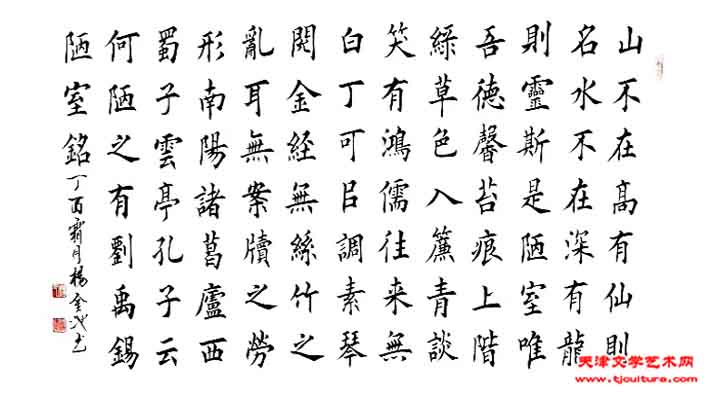 山不在髙有仙則
名水不在深有龍
則靈斯是陋室唯
吾德馨苔痕上階
綠草色入簾青談
笑有鴻儒往来無
白丁可㠯調素琴
閱金経無絲竹之
亂耳無案牘之勞
形南陽諸葛廬西
蜀子雲亭孔子云
何陋之有劉禹錫
陋室銘丁酉霜月楊金
天津文学艺术网
www.tjculture.com